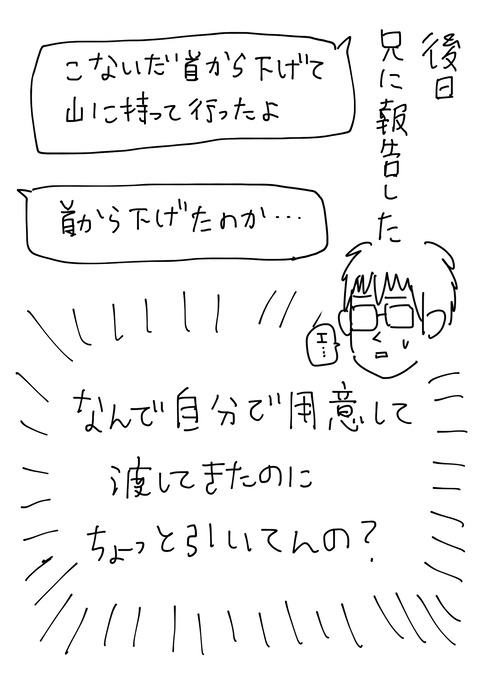 後日
兄に報告した
こないだ首から下げて
山に持って行ったよ
首から下げたのか…
エ…
なんで自分で用意して
渡してきたのに
ちょっと引いてんの？